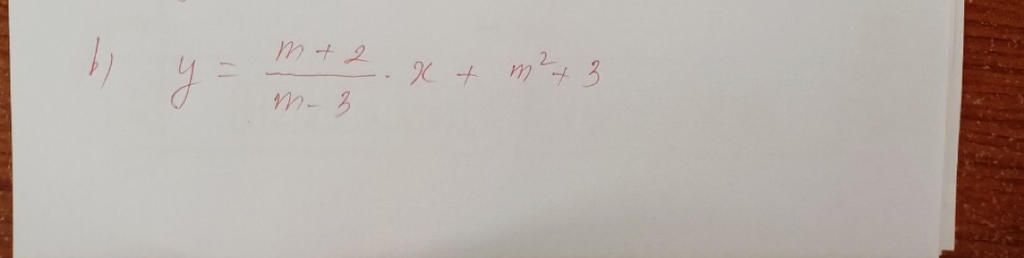 b) y = \frac{m+2}{m-3} . x + m² + 3